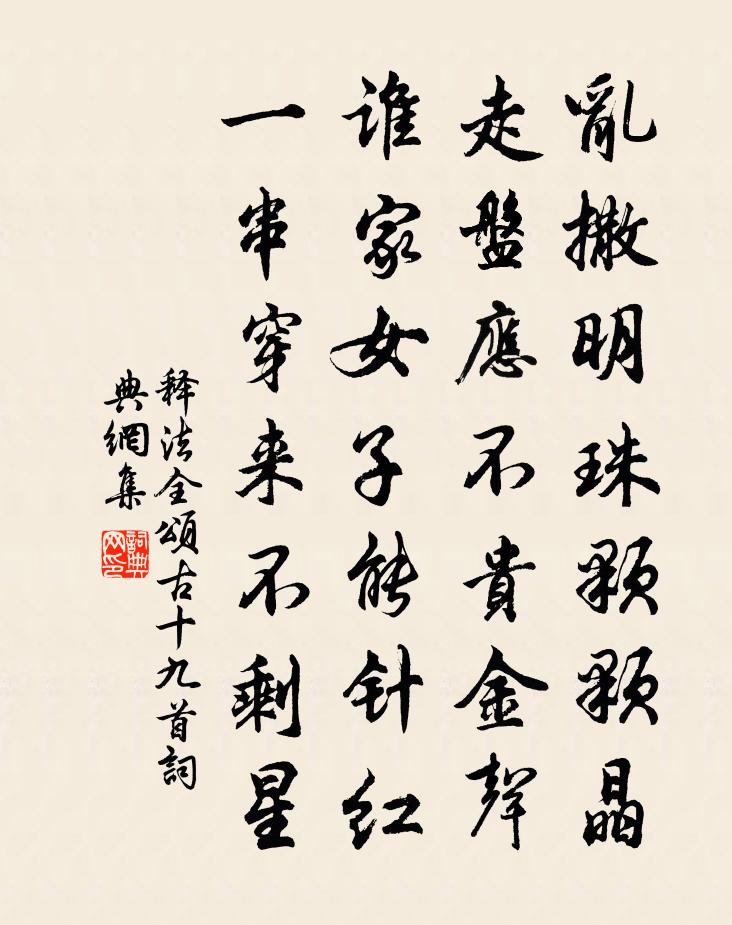 亂撒明珠顆顆晶
走盤應不貴金聲
誰家女子能针红
一串穿来不剩星
释法全頌古十九首詞
典網集
詞典
网印